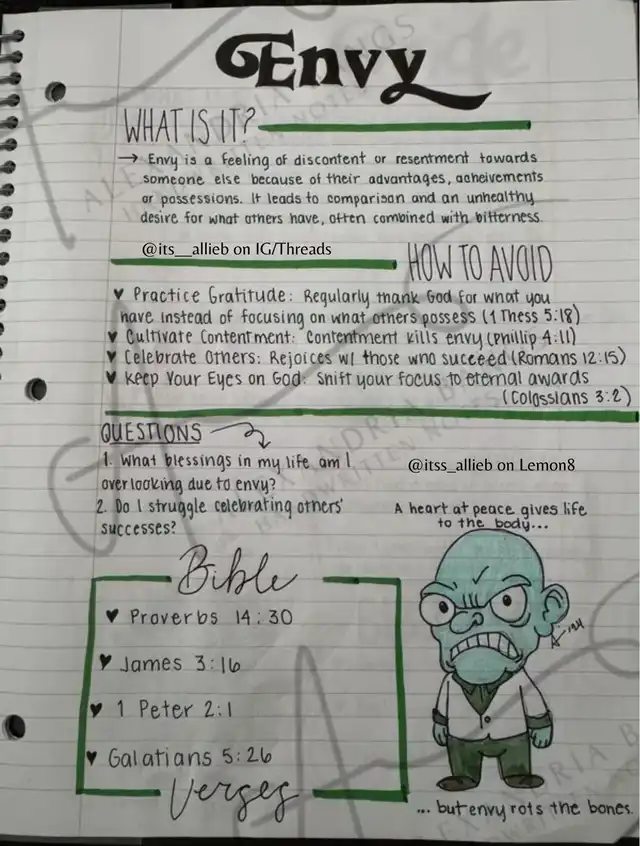 Envy
WHAT IS IT?
→ Envy is a feeling of discontent or resentment towards
someone else because of their advantages, acheivements
or possessions. It leads to comparison and an unhealthy
desire for what others have, often combined with bitterness.
@its__allieb on IG/Threads
HOW TO AVOID
♥ Practice Gratitude: Regularly thank God for what you
have instead of focusing on what others possess (1 Thess 5:18)
♥ Cultivate Contentment: Contentment kills envy (Phillip 4:11)
♥ Celebrate Others: Rejoices w/ those who succeed (Romans 12:15)
♥ Keep Your Eyes on God: Shift your focus to eternal awards
(Colossians 3:2)
QUESTIONS
1. What blessings in my life am I
overlooking due to envy?
2. Do I struggle celebrating others'
successes?
@itss_allieb on Lemon8
A heart at peace gives life
to the body...
Bible
♥ Proverbs 14:30
♥ James 3:16
♥ 1 Peter 2:1
♥ Galatians 5:26
Verses
... but envy rots the bones.